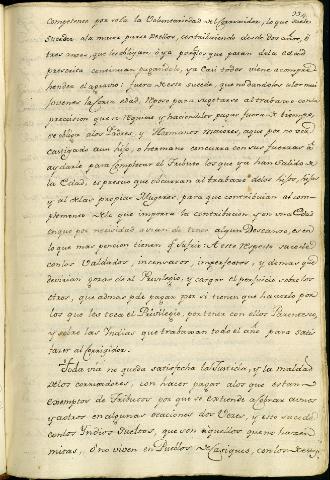 334
competentes por sola la Voluntariedad del Corregidor, lo que suele
suceder a la mayor parte de ellos, contribuiendo desde dos años, ò
tres antes, que les obliguen; ò ya porque los que pasan de la edad
prescrita continuan pagandolo, ya Casi todos viene a compre
hender el agravio: fuera de esto sucede, que no dandoles a los mui
Jovenes la corta edad, reposo para sugetarse al trabaxo con la
precision que se requiere y haciendoles pagar fuera de tiempo,
se obliga a los Padres, y Hermanos maiores, a que por no ver
Castigado a un hijo, o hermano concurra con sus fuerzas à
ayudarle para completar el Tributo: los que ya han Salido de
la Edad, es preciso que ocurran al trabaxo de los hijos, hijas
y al de las propias Mugeres, para que contribuian al com-
plemento de lo que importa la contribucion, y en una Edad
en que por necesidad avian de tener algun Descanso, es en
lo que mas pencion tienen q.e Sufrir: A este respecto sucede
con los Valdados, incensatos, imperfectos, y demas que
devieran gozar de al Privilegio, y cargar el perjuicio sobre los
otros, que ademas de pagar por si tienen que hacerlo por
los que les toca el Privilegio, por tener con ellos Parentesco,
y sobre las Indias que trabaxan todo el año para satis
facer al Corregidor.
Toda via no queda satisfecha la Justicia, y la maldad
de los corregidores, con hacer pagar a los que estan
exemptos de Tributos por que se extiende a Cobrar a unos
y a otros en algunas ocaciones dos Vezes, y esto sucede
con los Yndios Sueltos, que son aquellos que no hacen
mitas, ò no viven en Pueblos de Casiques, con los